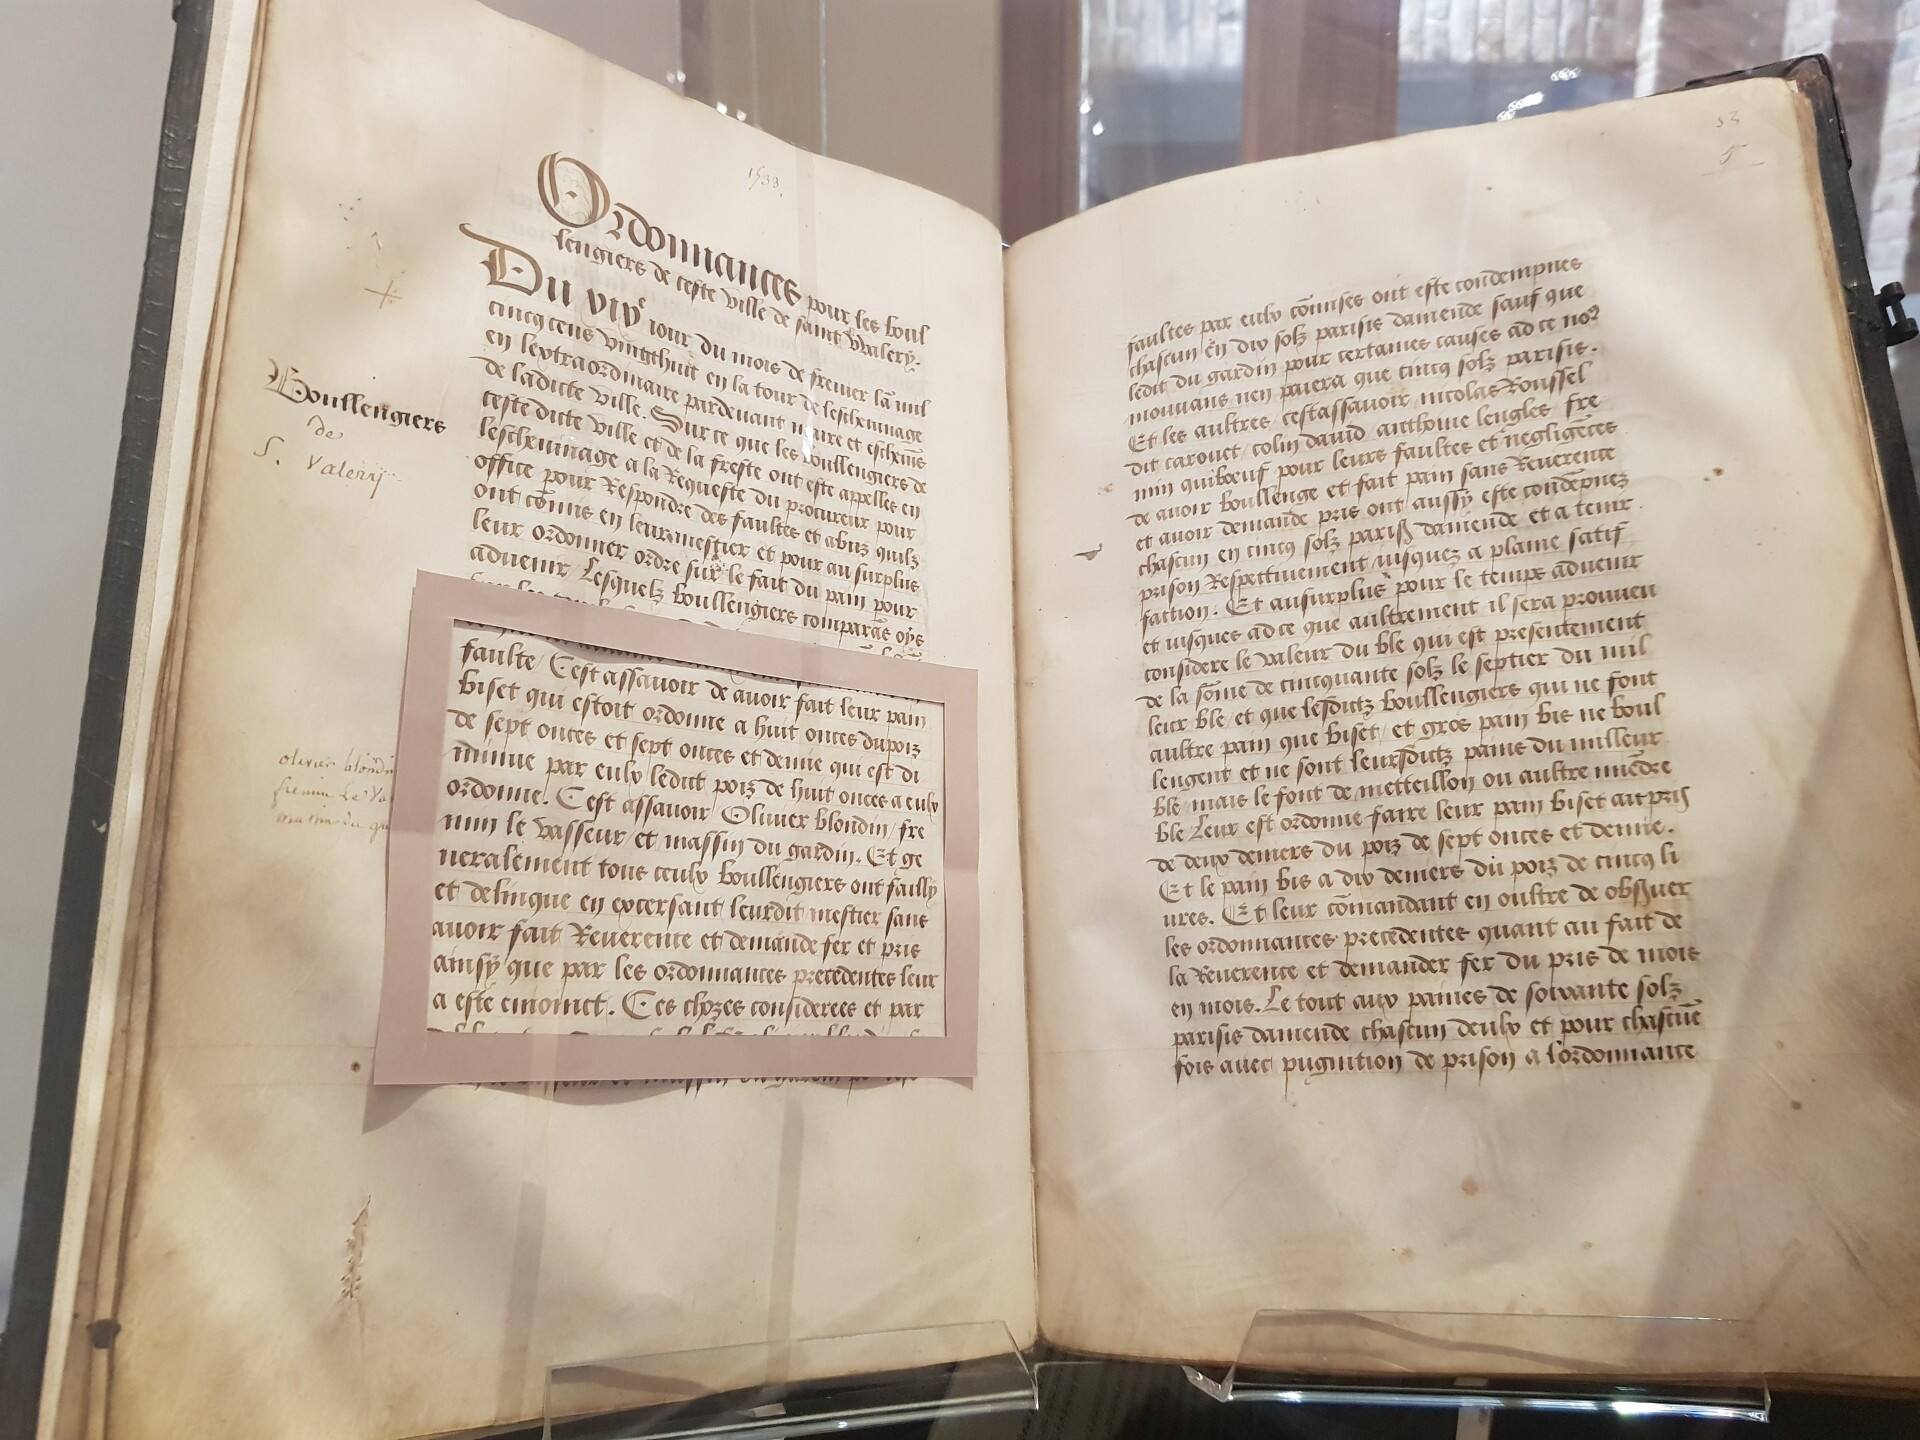 1533.
Ordonnances pour les boul
lengiers de ceste ville de saint Wallery.
Du xixe jour du mois de fevrier lan mil
cincq cens vingthuit en la tour de leschevinage
en lextraordinaire pardevant maire et eschevins
de ladicte ville. Sur ce que les boullengiers de
ceste dicte ville et de la freste ont este appelles en
leschevinage a la Requeste du procureur pour
office pour Respondre des faultes et abuz quilz
ont comis en leur mestier et pour au surplus
leur ordonner ordre sur le fait du pain pour
advenir Lesquelz boullengiers comparans oys
Boullengiers
de
S. Valery
olivier blondin
fremin Le Va
massin du ga
faulte / Cest assavoir de avoir fait leur pain
biset qui estoit ordonne a huit onces du poiz
de sept onces et sept onces et demie qui est di
minue par eulx ledict poiz de huit onces a eulx
ordonne. Cest assavoir Olivier blondin / fre
min le vasseur et massin du gardin. Et ge
neralement tous ceulx boullengiers ont failly
et delinque en excersant leurdit mestier sans
avoir fait Reverence et demande fer et pris
ainsy que par les ordonnances precedentes leur
a este enjoinct. Ces chozes considerees et par
et massin du gardin
53
faultes par eulx comises ont este condempnes
chascun en dix solz parisis damende sauf que
ledit du gardin pour certaines causes ad ce no9
mouvans nen paiera que cincq solz parisis.
Et les aultres / cestassavoir nicolas Roussel
dit carouet / colin david anthoine lengles fre
min quibœuf pour leurs faultes et negligeces
de avoir boullenge et fait pain sans Reverence
et avoir demande pris ont aussy este condepnez
chascun en cincq solz parisis damende et a tenir
prison Respectivement jusquez a plaine satif
faction. Et ausurplus pour le temps advenir
et jusques adce que aultrement il sera prouveu
considere le valeur du ble qui est presentement
de la some de cincquante solz le septier du mil
leur ble / et que lesdictz boullengiers qui ne font
aultre pain que biset / et gros pain bis ne boul
lengent et ne font leursdictz pains du milleur
ble / mais le font de metteillon ou aultre miedre
ble Leur est ordonne faire leur pain biset au pris
de deux deniers du poiz de sept onces et demie.
Et le pain bis a dix deniers du poiz de cincq li
vres. Et leur comandant en oultre de observer
les ordonnances precedentes quant au fait de
la Reverence et demander fer du pris de mois
en mois. Le tout aux paines de soixante solz
parisis damende chascun deulx et pour chascune
fois avec pugnition de prison a lordonnance